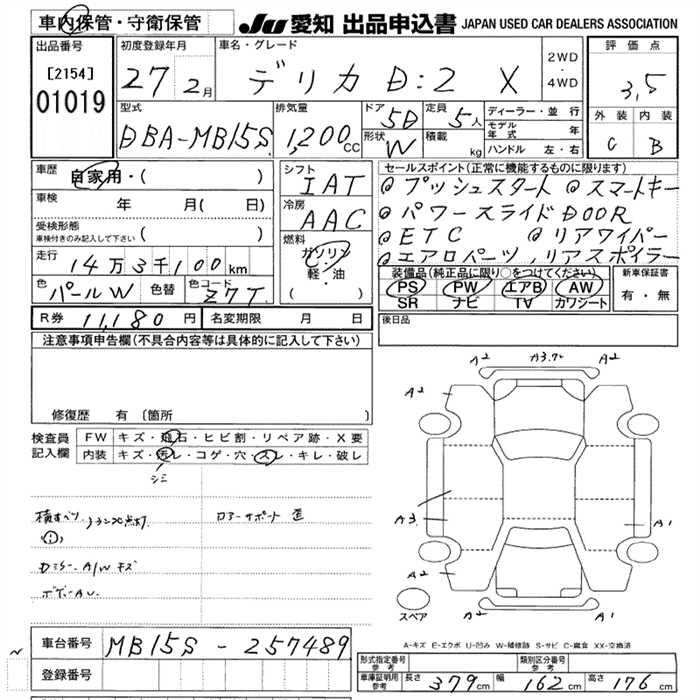 車内保管・守衛保管
JU 愛知 出品申込書 JAPAN USED CAR DEALERS ASSOCIATION
出品番号
[2154]
01019
初度登録年月
27 2月
車名・グレード
デリカ D:2 X
2WD
・
4WD
評価点
3,5
型式
DBA-MB15S
排気量
1,200cc
ドア
5D
形状
W
定員
5人
積載
kg
ディーラー・並行
モデル年式 年
ハンドル 左・右
外装
C
内装
B
車歴
自家用・( )
車検
年 月( 日)
受検形態
車検付きのみ記入して下さい ( )
走行
14万3千100km
色
パールW
色替
色コード
Z7T
シフト
IAT
冷房
AAC
燃料
ガソリン
軽・油
( )
セールスポイント(正常に機能するものに限ります)
@プッシュスタート @スマートキー
@パワースライドDOOR
@ETC @リアワイパー
@エアロパーツ, リアスポイラー
装備品(純正品に限り○をつけてください)
PS PW エアB AW
SR ナビ TV カワシート
新車保証書
有・無
R券 11,180円 名変期限 月 日
後日品
注意事項申告欄(不具合内容等は具体的に記入して下さい)
修復歴 有(箇所 )
検査員
記入欄
FW キズ・飛石・ヒビ割・リペア跡・X要
内装 キズ・汚レ・コゲ・穴・スレ・キレ・破レ
シミ
ロアーサポート 歪
Dミラー. A/W キズ
ボデーAU.
A2 A3.72 A2
A2 A2
A3 A1
A2 A2
スペア
A-キズ E-エクボ U-凹み W-補修跡 S-サビ C-腐食 XX-交換済
車台番号 MB15S-257489
登録番号
形式指定番号
参考
類別区分番号
参考
車庫証明用
参考
長さ 379cm 幅 162cm 高さ 176cm